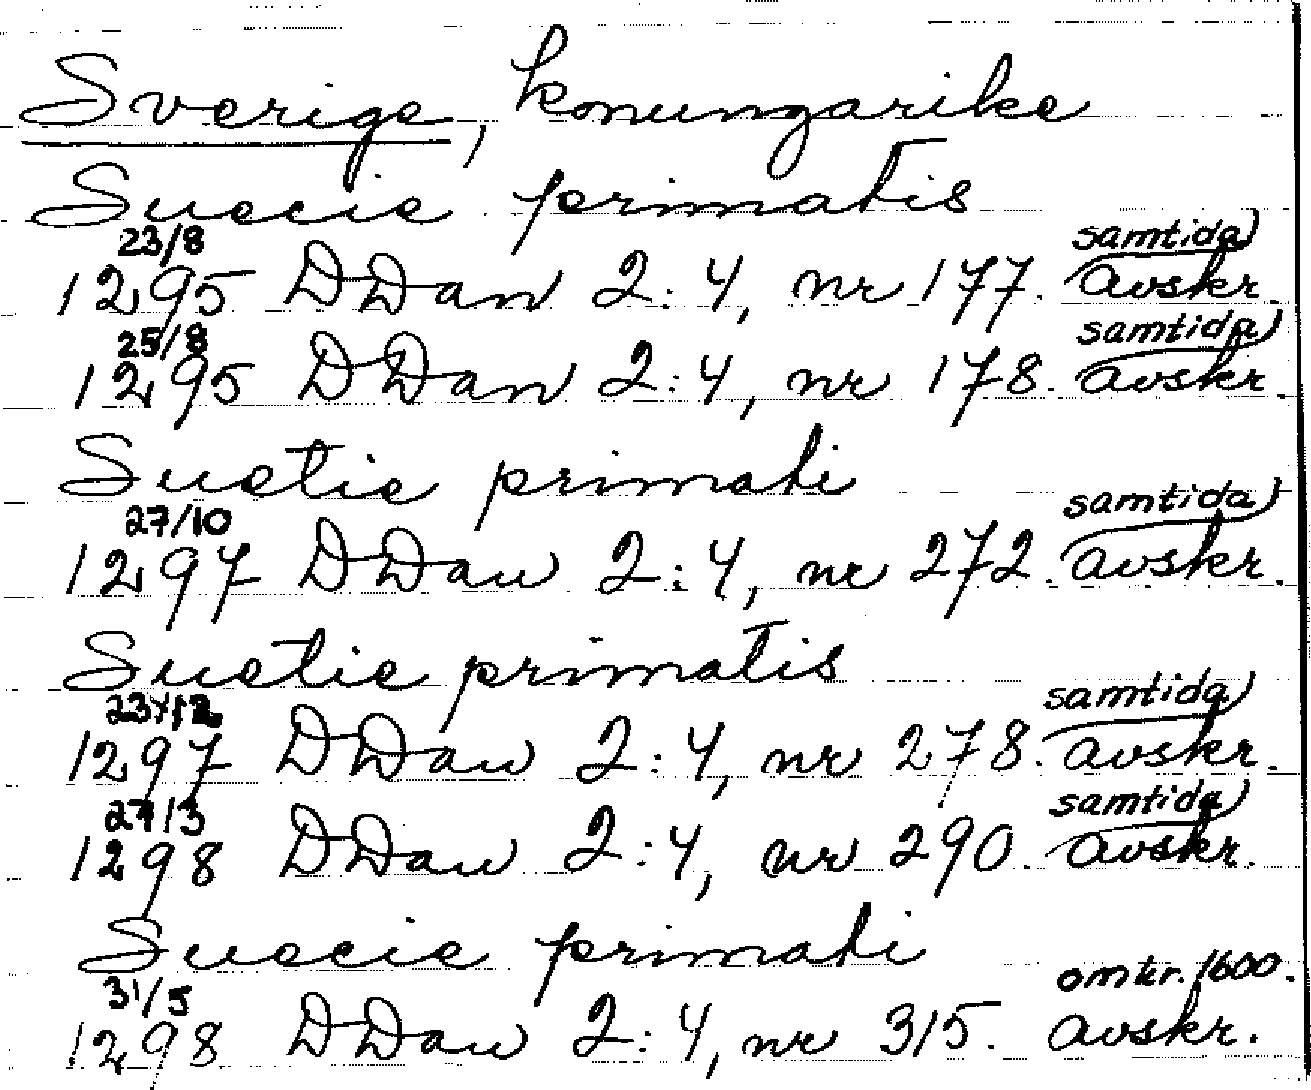 Sverige, konungarike
Suecie primatis
23/8 samtida
1295 DDan 2:4, nr 177. avskr.
25/8 samtida
1295 DDan 2:4, nr 178. avskr.
Suetie primati
27/10 samtida
1297 DDan 2:4, nr 272. avskr.
Suetie primatis
23/12 samtida
1297 DDan 2:4, nr 278. avskr.
27/3 samtida
1298 DDan 2:4, nr 290. avskr.
Suecie primati
31/5 omkr. 1600.
1298 DDan 2:4, nr 315. avskr.